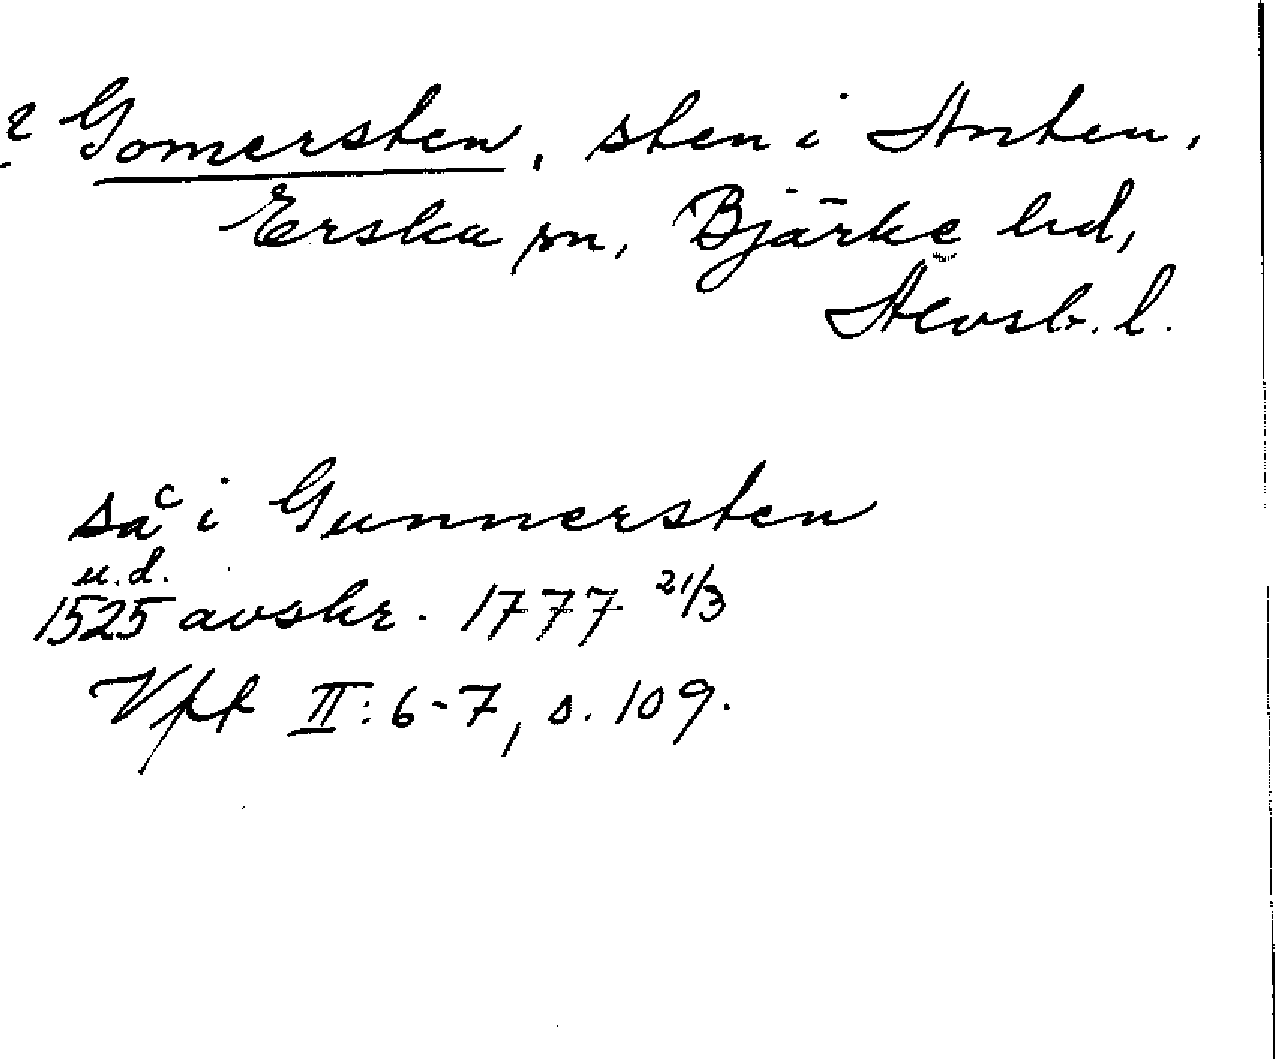 ? Gomersten, sten i Anten,
Erska sn, Bjärke hd,
Älvsb. l.
så i Gunnersten
u.d.
1525 avskr. 1777 21/3
Vft II: 6-7, s. 109.